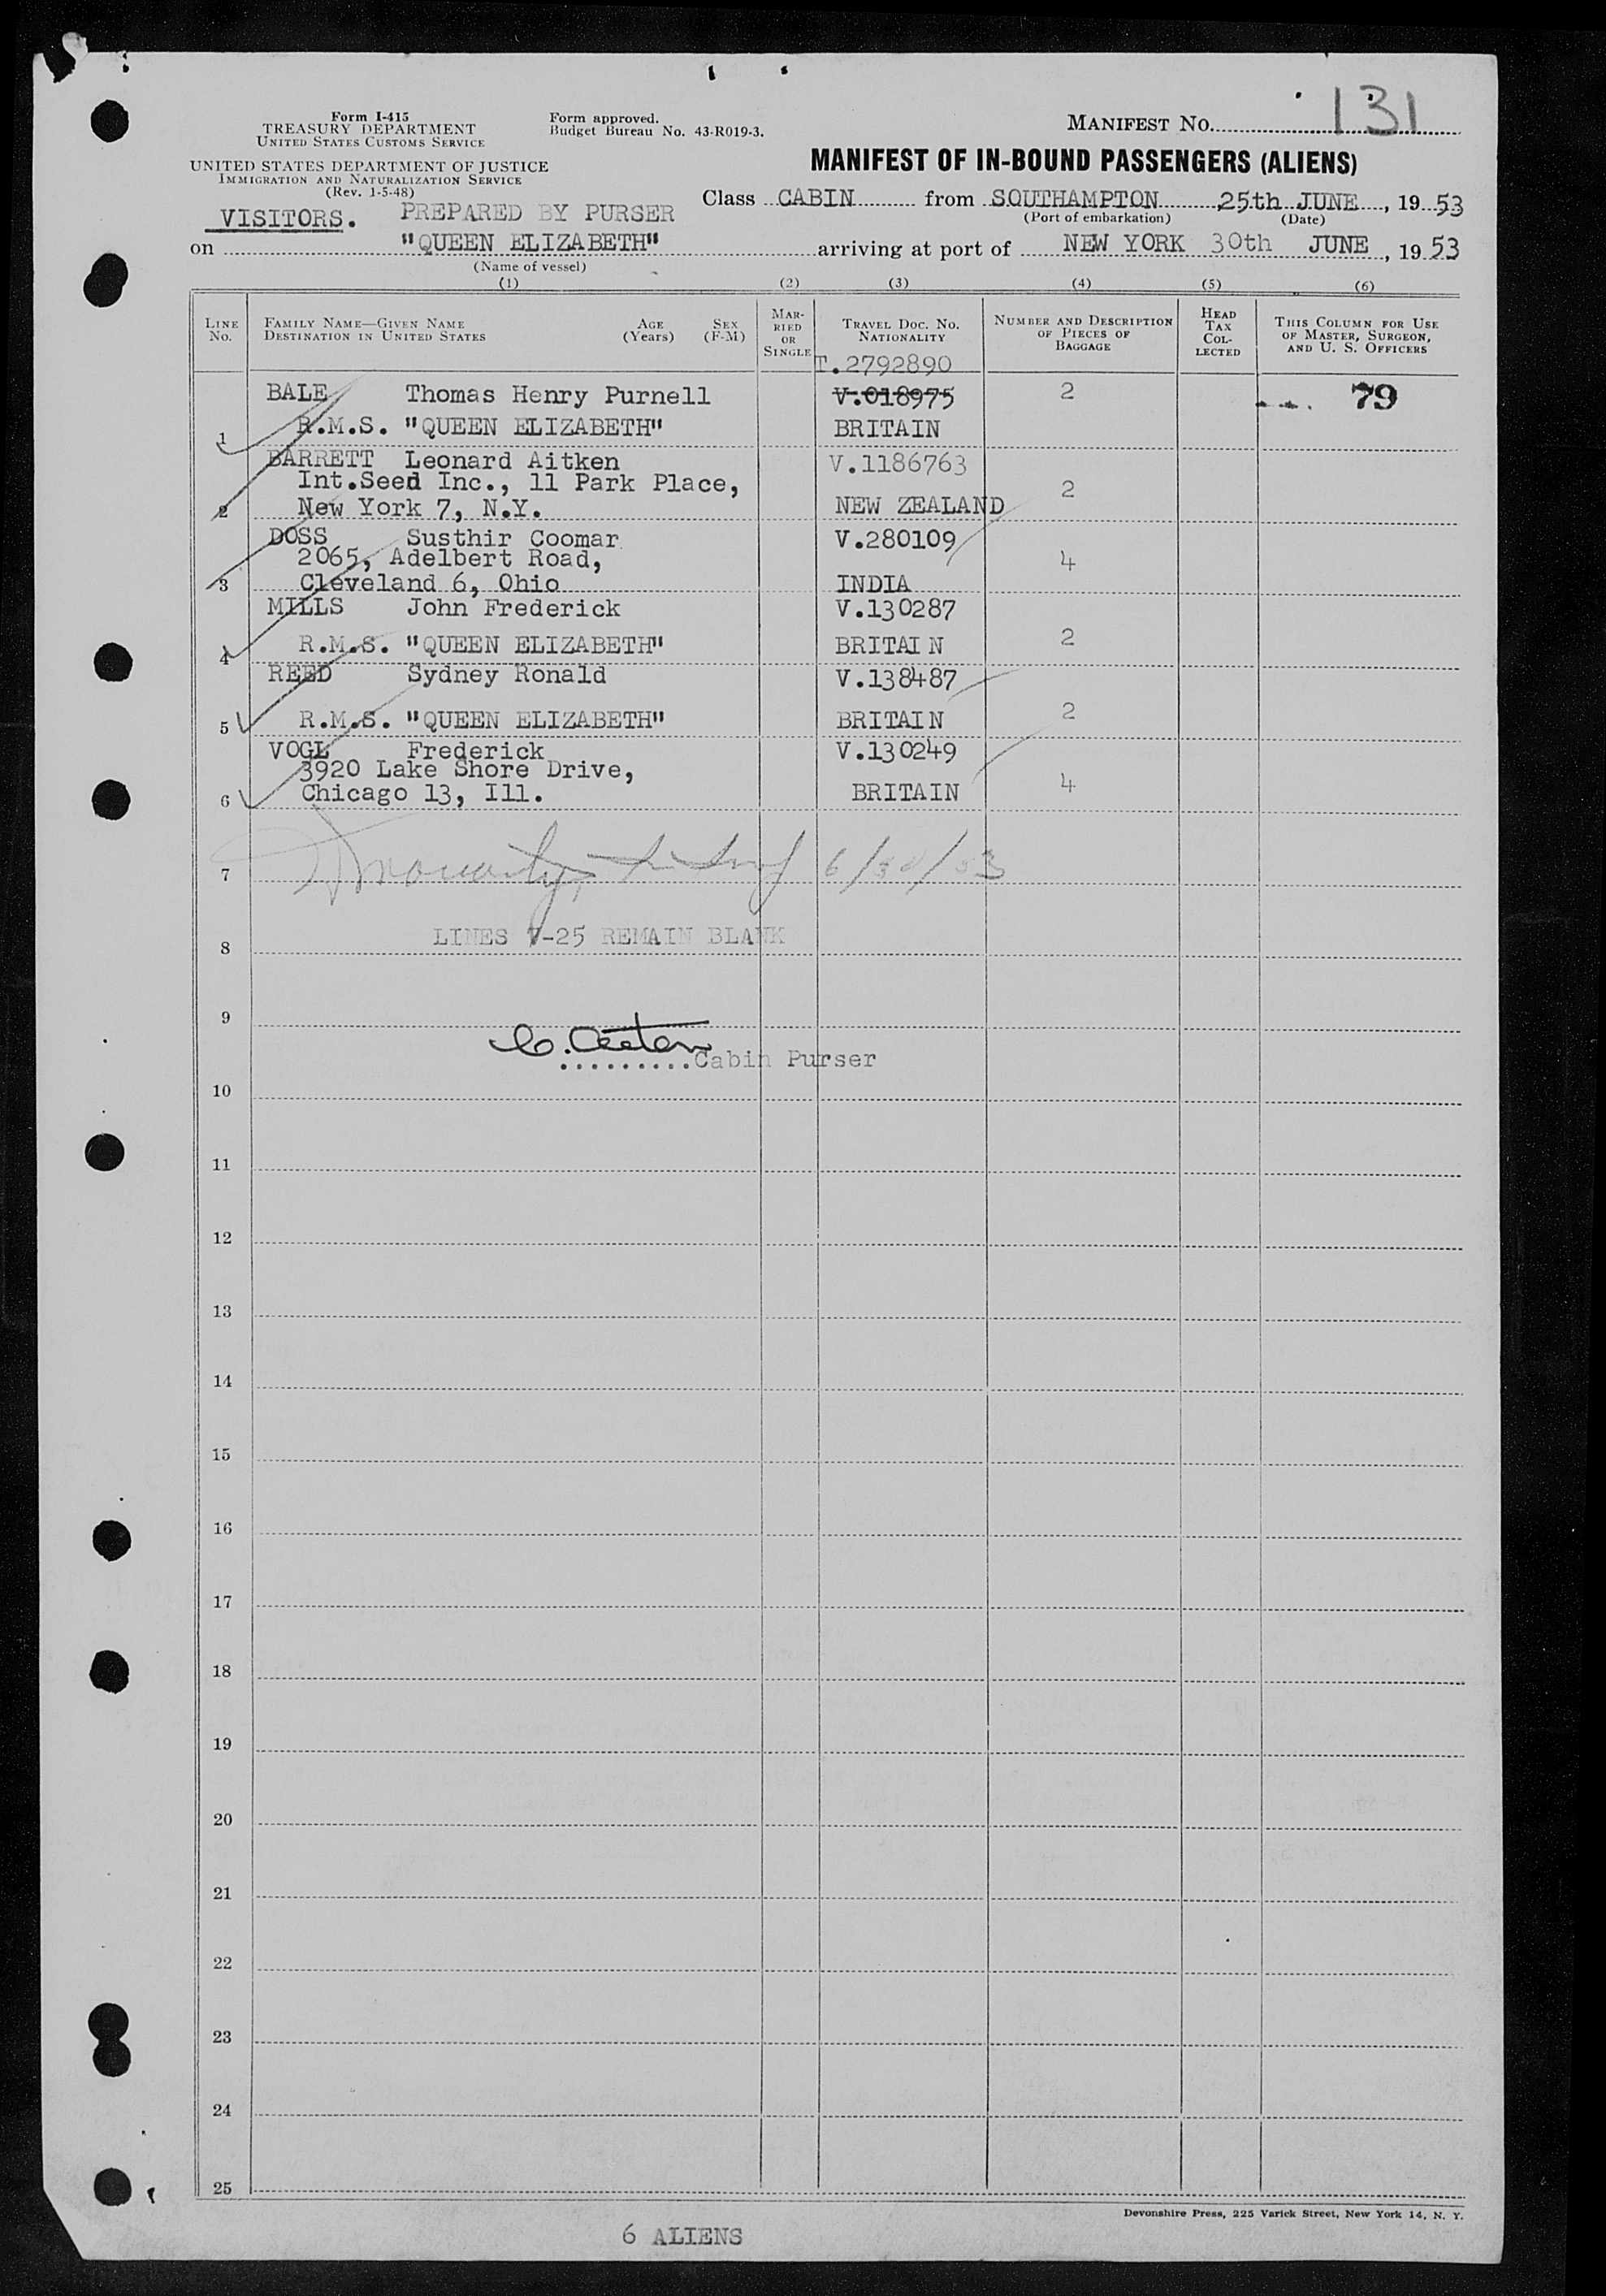 Form I-415
TREASURY DEPARTMENT
UNITED STATES CUSTOMS SERVICE
UNITED STATES DEPARTMENT OF JUSTICE
IMMIGRATION AND NATURALIZATION SERVICE
(Rev. 1-5-48)
Form approved.
Budget Bureau No. 43-R019-3.
MANIFEST NO. 131
MANIFEST OF IN-BOUND PASSENGERS (ALIENS)
Class CABIN from SOUTHAMPTON 25th JUNE, 19 53
(Port of embarkation) (Date)
VISITORS. PREPARED BY PURSER
on "QUEEN ELIZABETH" arriving at port of NEW YORK 30th JUNE, 19 53
(Name of vessel)
(1) (2) (3) (4) (5) (6)
LINE NO. FAMILY NAME—GIVEN NAME DESTINATION IN UNITED STATES AGE (Years) SEX (F-M) MARRIED OR SINGLE TRAVEL DOC. NO. NATIONALITY NUMBER AND DESCRIPTION OF PIECES OF BAGGAGE HEAD TAX COLLECTED THIS COLUMN FOR USE OF MASTER, SURGEON, AND U. S. OFFICERS
T.2792890
BALE Thomas Henry Purnell V.018975 2 79
1 R.M.S. "QUEEN ELIZABETH" BRITAIN
BARRETT Leonard Aitken V.1186763
Int.Seed Inc., 11 Park Place, 2
2 New York 7, N.Y. NEW ZEALAND
DOSS Susthir Coomar V.280109
2065, Adelbert Road, 4
3 Cleveland 6, Ohio INDIA
MILLS John Frederick V.130287
4 R.M.S. "QUEEN ELIZABETH" BRITAIN 2
REED Sydney Ronald V.138487
5 R.M.S. "QUEEN ELIZABETH" BRITAIN 2
VOGL Frederick V.130249
3920 Lake Shore Drive,
6 Chicago 13, Ill. BRITAIN 4
7 6/30/53
LINES 7-25 REMAIN BLANK
8
9
.........Cabin Purser
10
11
12
13
14
15
16
17
18
19
20
21
22
23
24
25
Devonshire Press, 225 Varick Street, New York 14, N. Y.
6 ALIENS